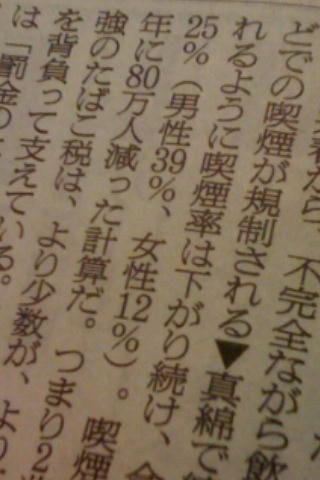 春から、不完全ながら飲
どでの喫煙が規制される▼真綿で
れるように喫煙率は下がり続け、
25%（男性39%、女性12%）。喫煙
年に80万人減った計算だ。つまり2
強のたばこ税は、より少数が、より
を背負って支えている。
は「罰金の